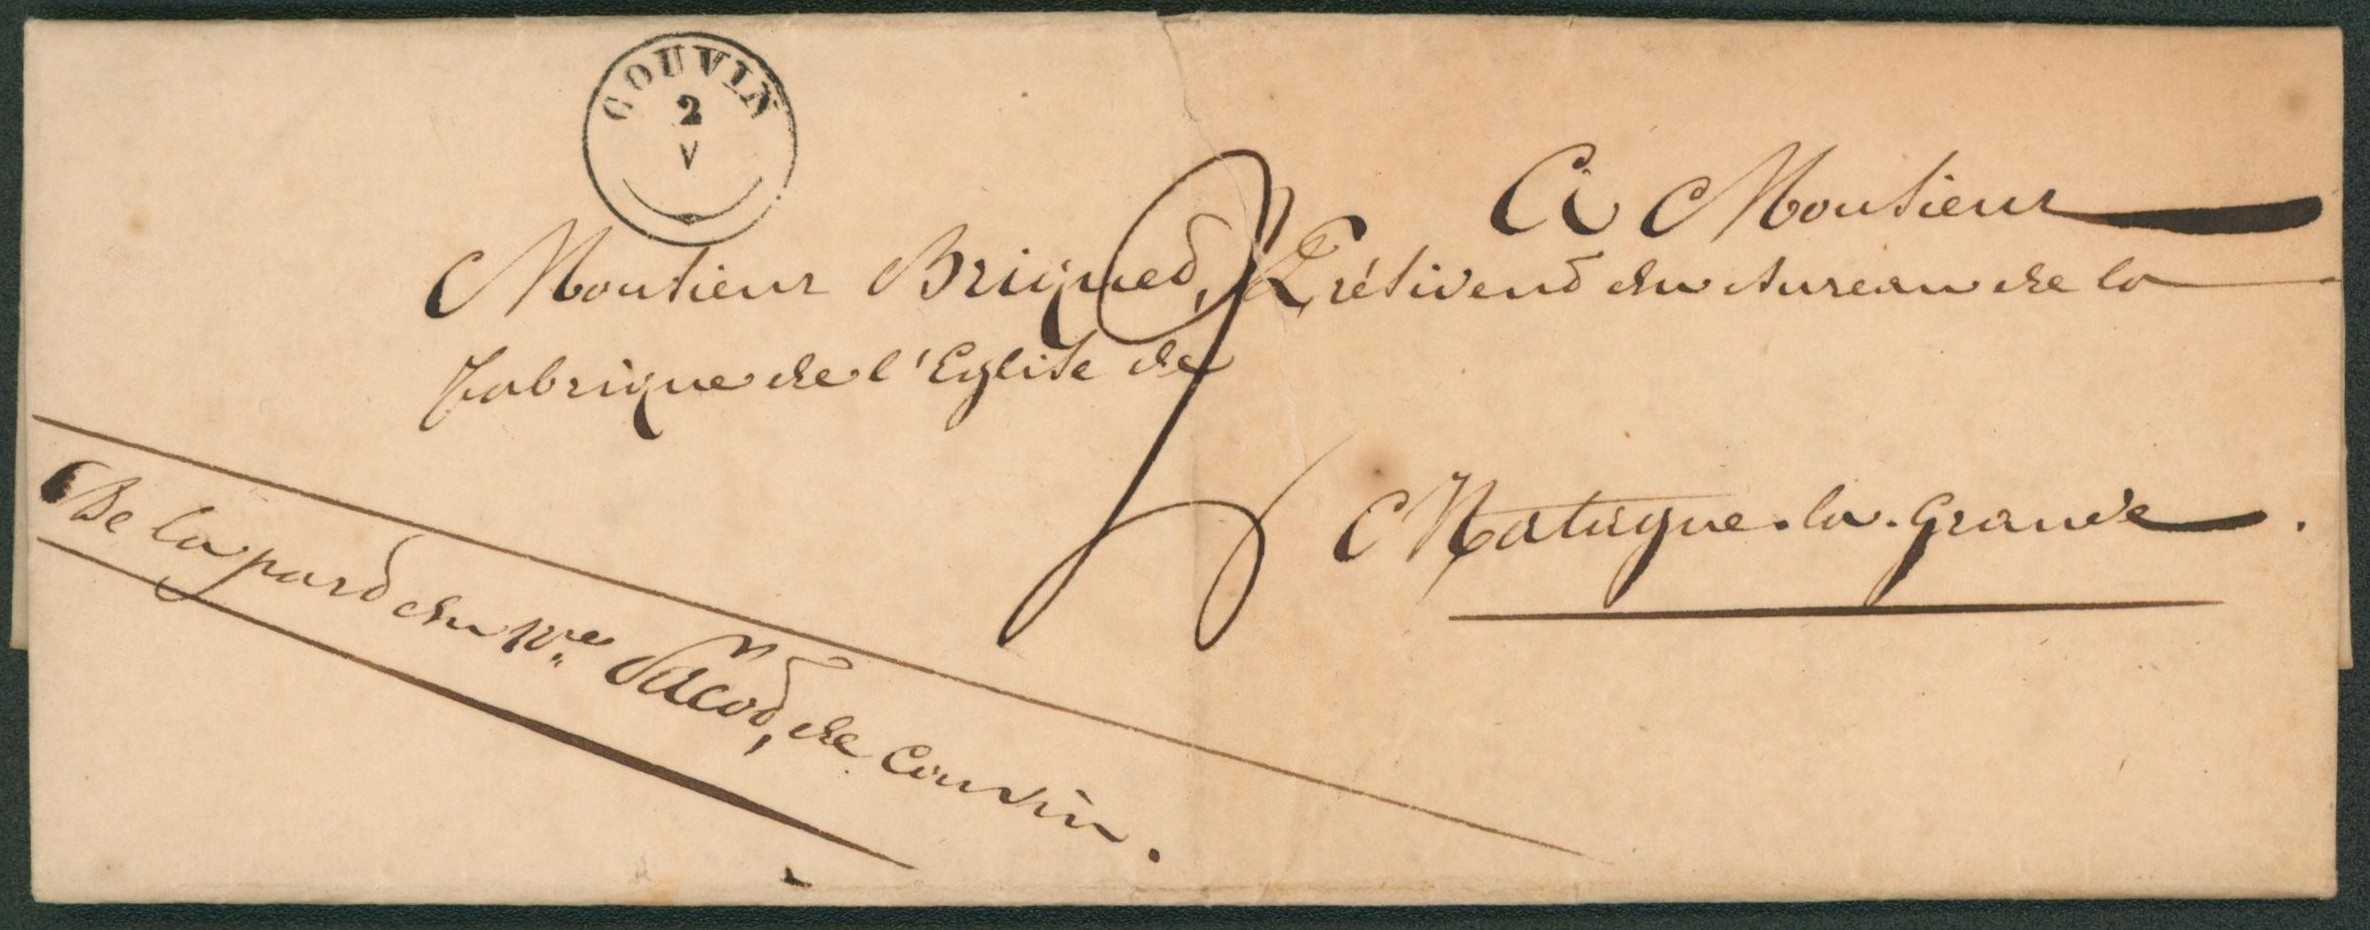 COUVIN
2
V
A Monsieur
Monsieur Briquet, Président du bureau de la
fabrique de l'Eglise de
Matagne-la-Grande.
De la part du de Couvin.